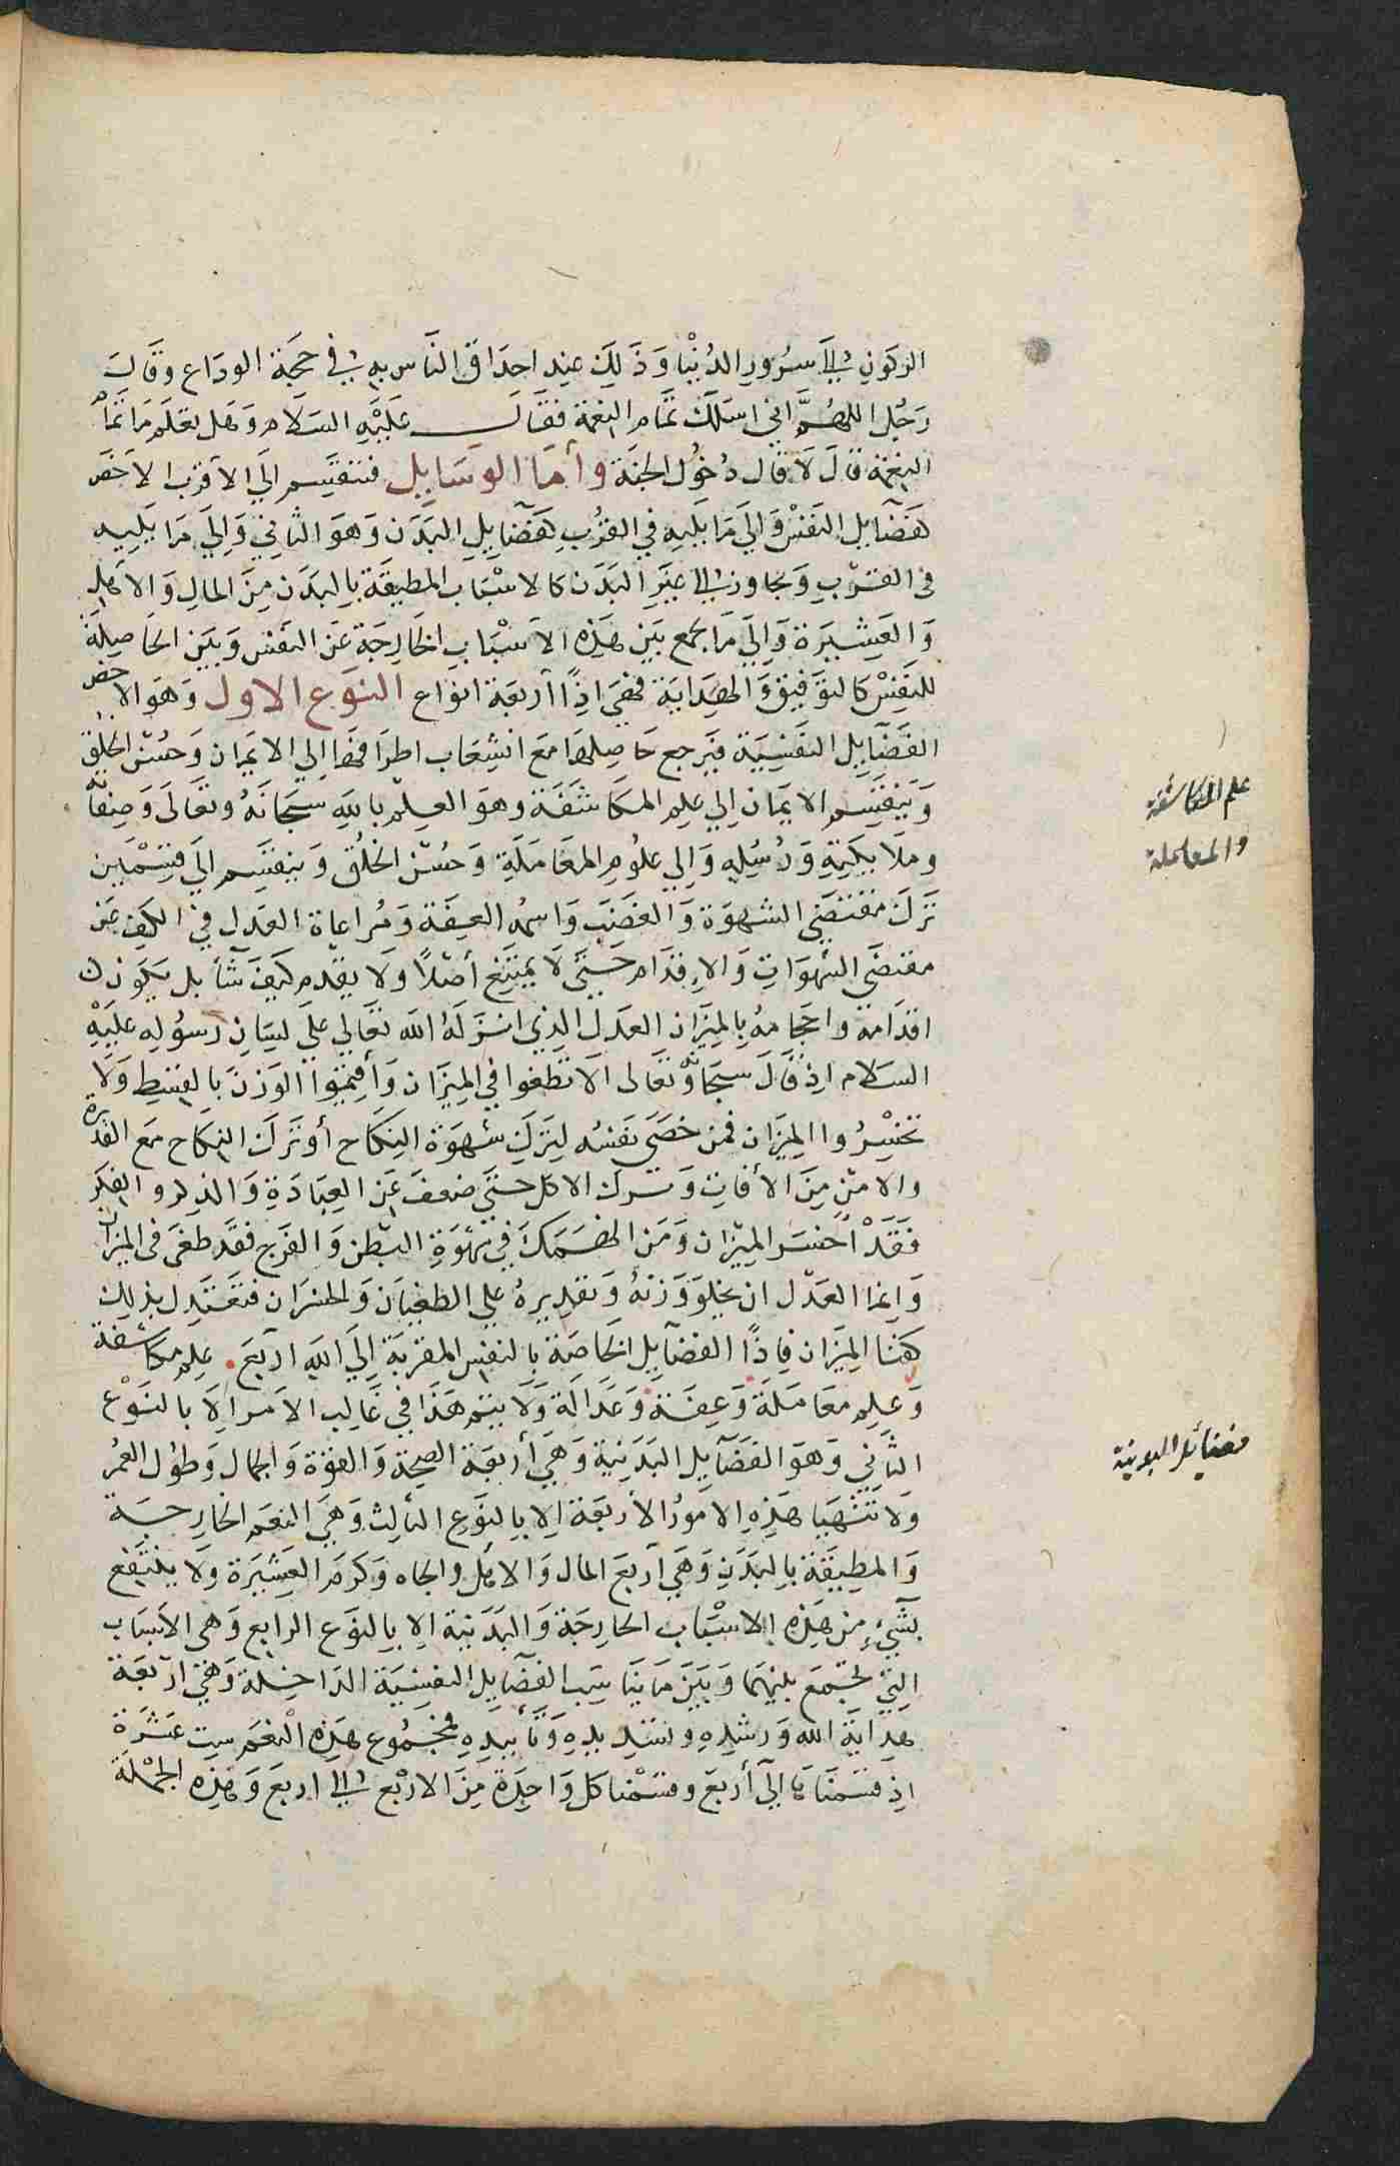 الركون الى سرور الدنيا وذلك عند احداق الناس به في حجة الوداع وقال
رجل اللهم اني اسئلك تمام النعمة فقال عليه السلام وهل تعلم ما تمام
النعمة قال لا قال دخول الجنة وأما الوسايل فتنقسم الي الاقرب الاخص
كفضايل النفس والى ما يليه في القرب كفضايل البدن وهو الثاني والى ما يليه
في القرب ويجاوز الى غير البدن كالاسباب المطيفة بالبدن من المال والاهل
والعشيرة والى ما يجمع بين هذه الاسباب الخارجة عن النفس وبين الحاصلة
للنفس كالتوفيق والهداية فهي اذا أربعة انواع النوع الاول وهو الاخص
الفضايل النفسية فيرجع حاصلها مع انشعاب اطرافها الي الايمان وحسن الخلق
وينقسم الايمان الي علم المكاشفة وهو العلم بالله سبحانه وتعالى وصفاته
وملايكته ورسله والي علوم المعاملة وحسن الخلق وينقسم الى قسمين
ترك مقتضى الشهوة والغضب واسمه العفة ومراعاة العدل في الكف عن
مقتضى الشهوات والاقدام حتى لا يمتنع أصلا ولا يقدم كيف شآ بل يكون
اقدامه واحجامه بالميزان العدل الذي انزله الله تعالي على لسان رسوله عليه
السلام اذ قال سبحانه وتعالى الا تطغوا في الميزان وأقيموا الوزن بالقسط ولا
تخسروا الميزان فمن خصى نفسه ليترك شهوة النكاح أو ترك النكاح مع القدرة
والامن من الأفات وترك الاكل حتى ضعف عن العبادة والذكر والفكر
فقد أخسر الميزان ومن انهمك في شهوة البطن والفرج فقد طغى في الميزان
وانما العدل ان يخلو وزنه وتقديره علي الطغيان والخسران فتعتدل بذلك
كفتا الميزان فاذا الفضآيل الخاصة بالنفس المقربة إلى الله اربع علم مكاشفة
وعلم معاملة وعفة وعدالة ولا يتم هذا في غالب الامر إلا بالنوع
الثاني وهو الفضآيل البدنية وهي أربعة الصحة والقوة والجمال وطول العمر
ولا تتهيا هذه الامور الأربعة الا بالنوع الثالث وهي النعم الخارجة
والمطيفة بالبدن وهي اربع المال والاهل والجاه وكرم العشيرة ولا ينتفع
بشيء من هذه الاسباب الخارجة والبدنية الا بالنوع الرابع وهى الاسباب
التي تجمع بينهما وبين ما يناسب الفضآيل النفسية الداخلة وهي اربعة
هداية الله ورشده وتسديده وتأييده فمجموع هذه النعم ست عشرة
اذ قسمناها الى أربع وقسمنا كل واحدة من الاربع الى اربع وهذه الجملة
علم المكاشفة
والمعاملة
فضائل البدنية